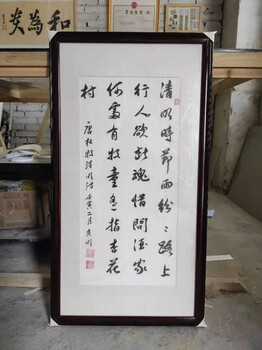 和為貴
清明時節雨紛〻路上
行人欲斷魂借問酒家
何處有牧童遙指杏花
村
唐杜牧清明詩壬寅二月